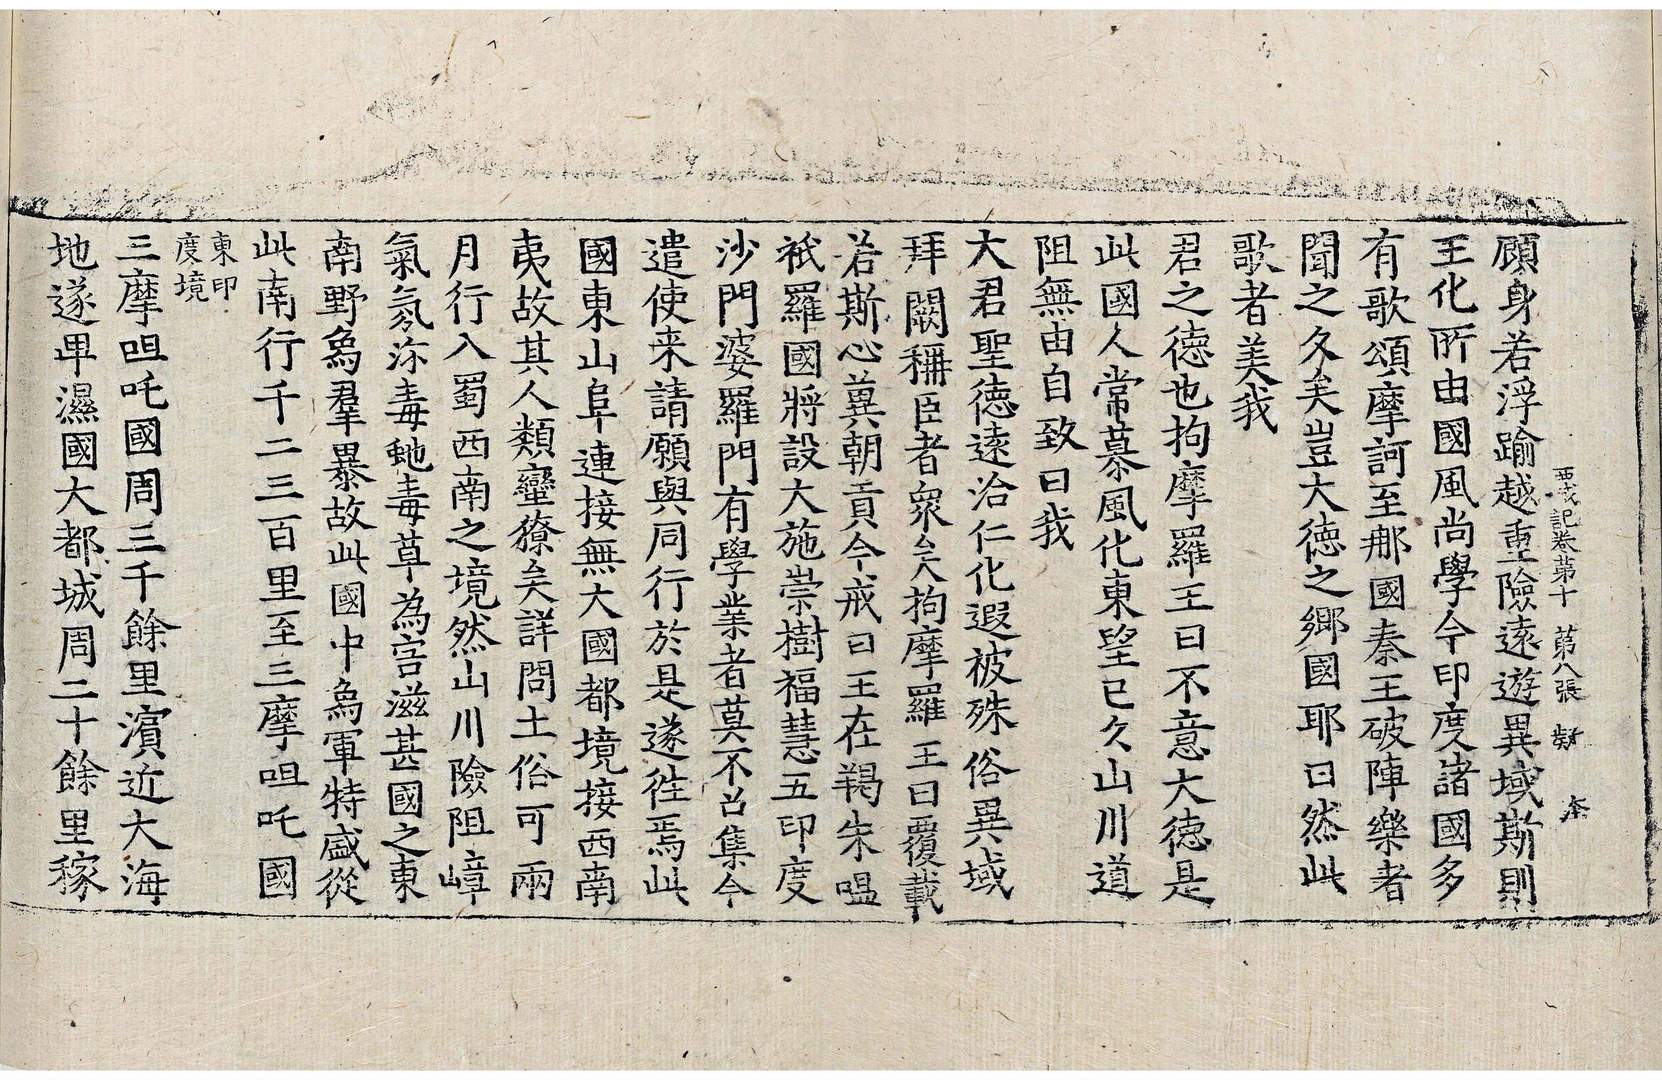 西域記卷第十 第八張 疑
顧身若浮踰越重險遠遊異域斯則
王化所由國風尚學今印度諸國多
有歌頌摩訶至那國秦王破陣樂者
聞之久矣豈大德之鄉國耶曰然此
歌者美我
君之德也拘摩羅王曰不意大德是
此國人常慕風化東望已久山川道
阻無由自致曰我
大君聖德遠洽仁化遐被殊俗異域
拜闕稱臣者衆矣拘摩羅王曰覆載
若斯心冀朝貢今戒日王在羯朱嗢
祇羅國將設大施崇樹福慧五印度
沙門婆羅門有學業者莫不召集今
遣使来請願與同行於是遂徃焉此
國東山阜連接無大國都境接西南
夷故其人類蠻獠矣詳問土俗可兩
月行入蜀西南之境然山川險阻嶂
氣氛沴毒虵毒草為害滋甚國之東
南野象羣暴故此國中象軍特盛從
此南行千二三百里至三摩呾吒國
東印
度境
三摩呾吒國周三千餘里濱近大海
地遂卑濕國大都城周二十餘里稼